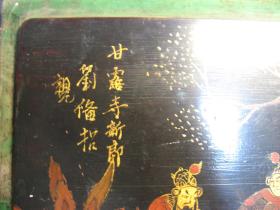 甘露寺新郎
劉俻招
親